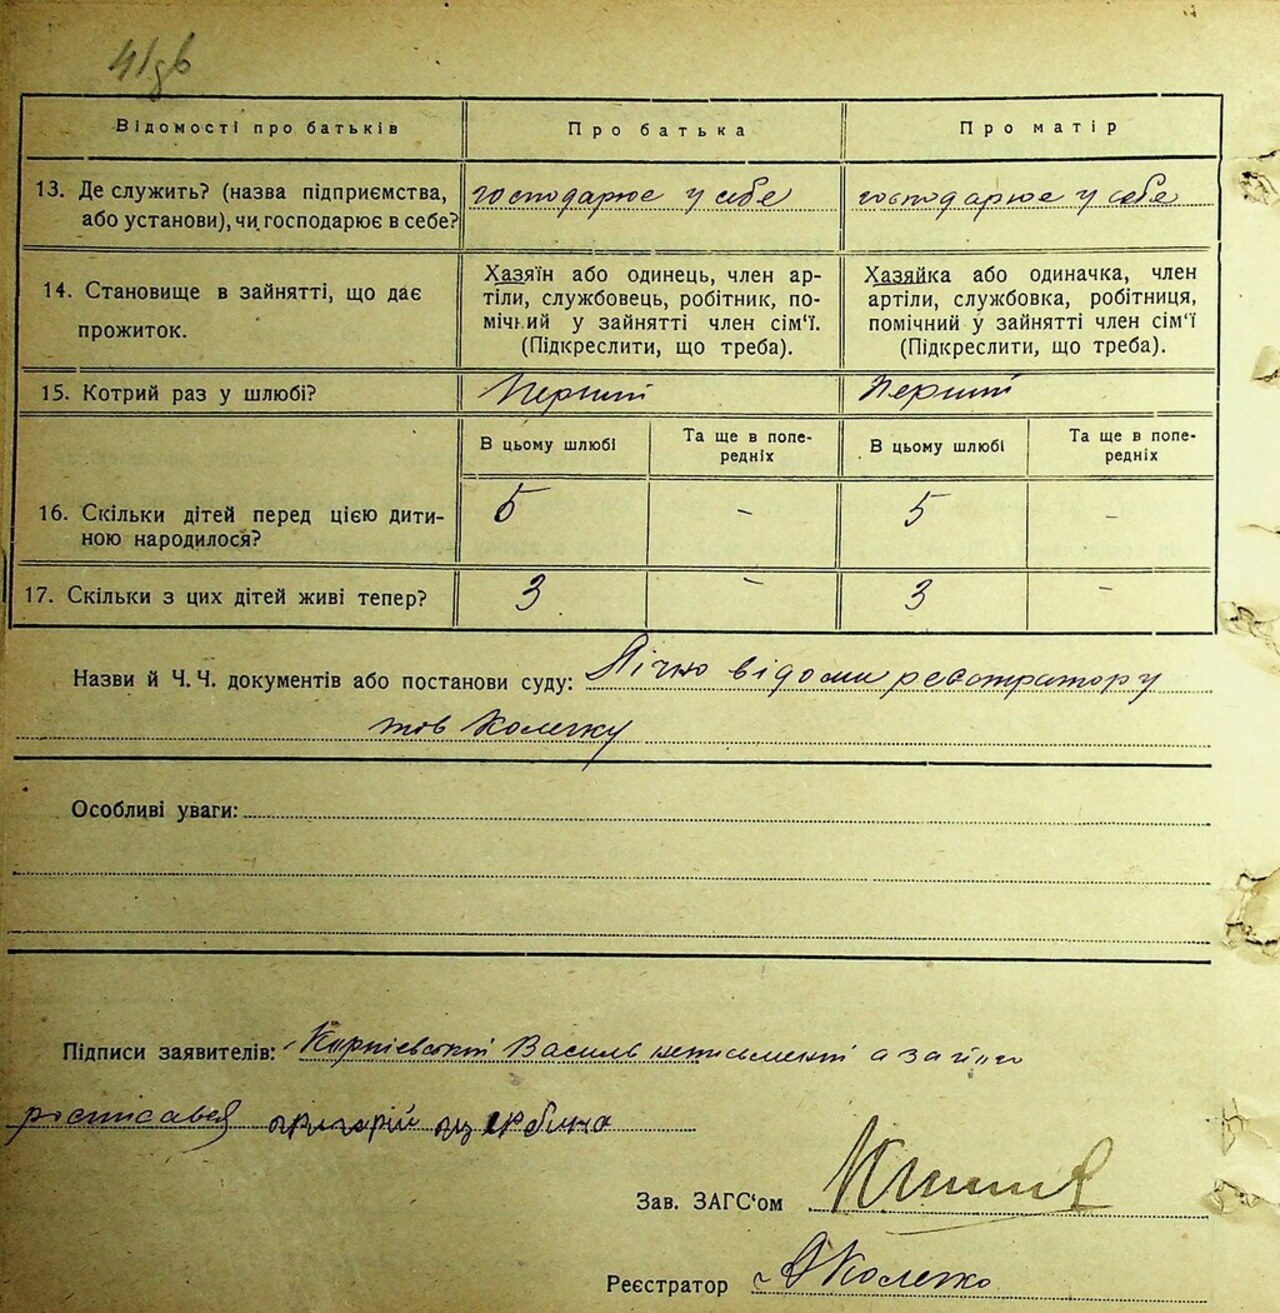 41зв
Відомості про батьків
Про батька
Про матір
13. Де служить? (назва підприємства,
або установи), чи господарює в себе?
господарює у себе
господарює у себе
14. Становище в зайнятті, що дає
прожиток.
Хазяїн або одинець, член ар-
тіли, службовець, робітник, по-
мічний у зайнятті член сім'ї.
(Підкреслити, що треба).
Хазяйка або одиначка, член
артіли, службовка, робітниця,
помічний у зайнятті член сім'ї
(Підкреслити, що треба).
15. Котрий раз у шлюбі?
Перший
Перший
В цьому шлюбі
Та ще в попе-
редніх
В цьому шлюбі
Та ще в попе-
редніх
16. Скільки дітей перед цією дити-
ною народилося?
5
-
5
-
17. Скільки з цих дітей живі тепер?
3
-
3
-
Назви й Ч. Ч. документів або постанови суду: Лічно відоми реєстратору
тов Колечку
Особливі уваги:
Підписи заявителів: Корнієвський Василь неписьмений а за його
росписався григорій щербина
Зав. ЗАГС'ом
Реєстратор